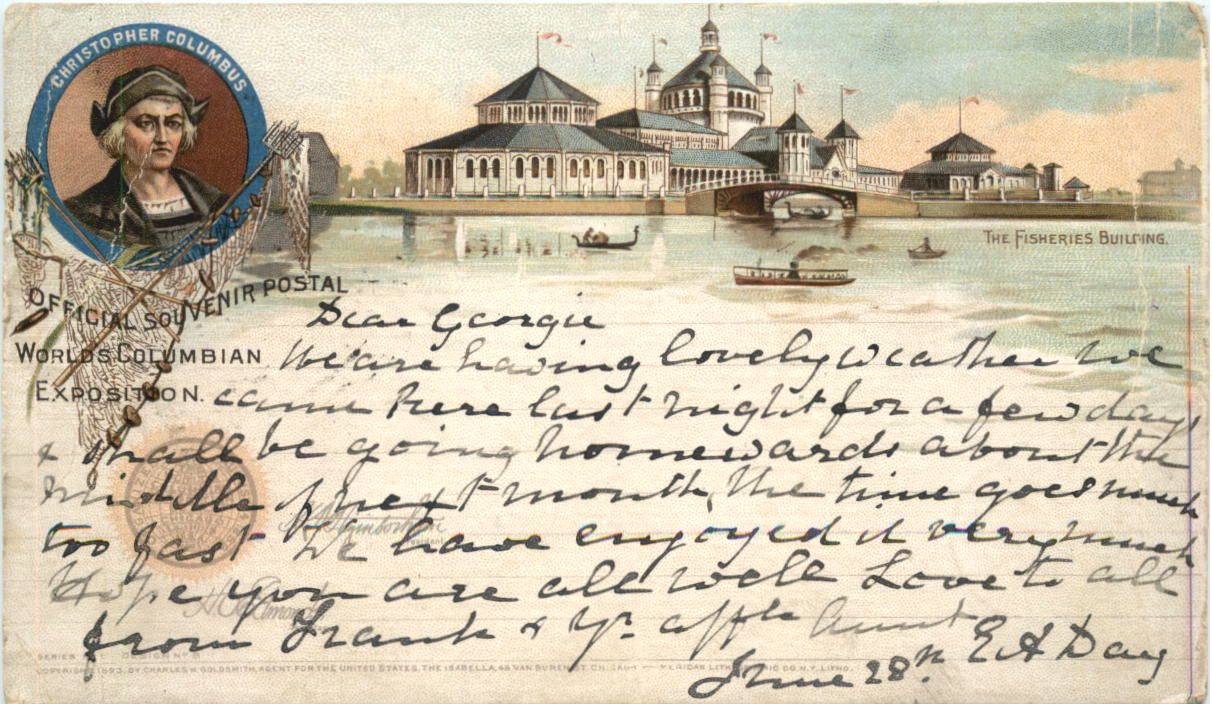 CHRISTOPHER COLUMBUS
THE FISHERIES BUILDING.
OFFICIAL SOUVENIR POSTAL
WORLDS COLUMBIAN
EXPOSITION.
Dear Georgie
We are having lovely weather we
came here last night for a few days
& shall be going homewards about the
middle of next month, the time goes much
too fast We have enjoyed it very much
Hope you are all well Love to all
from Frank & Yr. affte Aunt
E A Day
June 28th
President
SERIES
COPYRIGHT 1893, BY CHARLES W. GOLDSMITH, AGENT FOR THE UNITED STATES, THE ISABELLA, 48 VAN BUREN ST. CHICAGO — AMERICAN LITHOGRAPHIC CO. N.Y. LITHO.